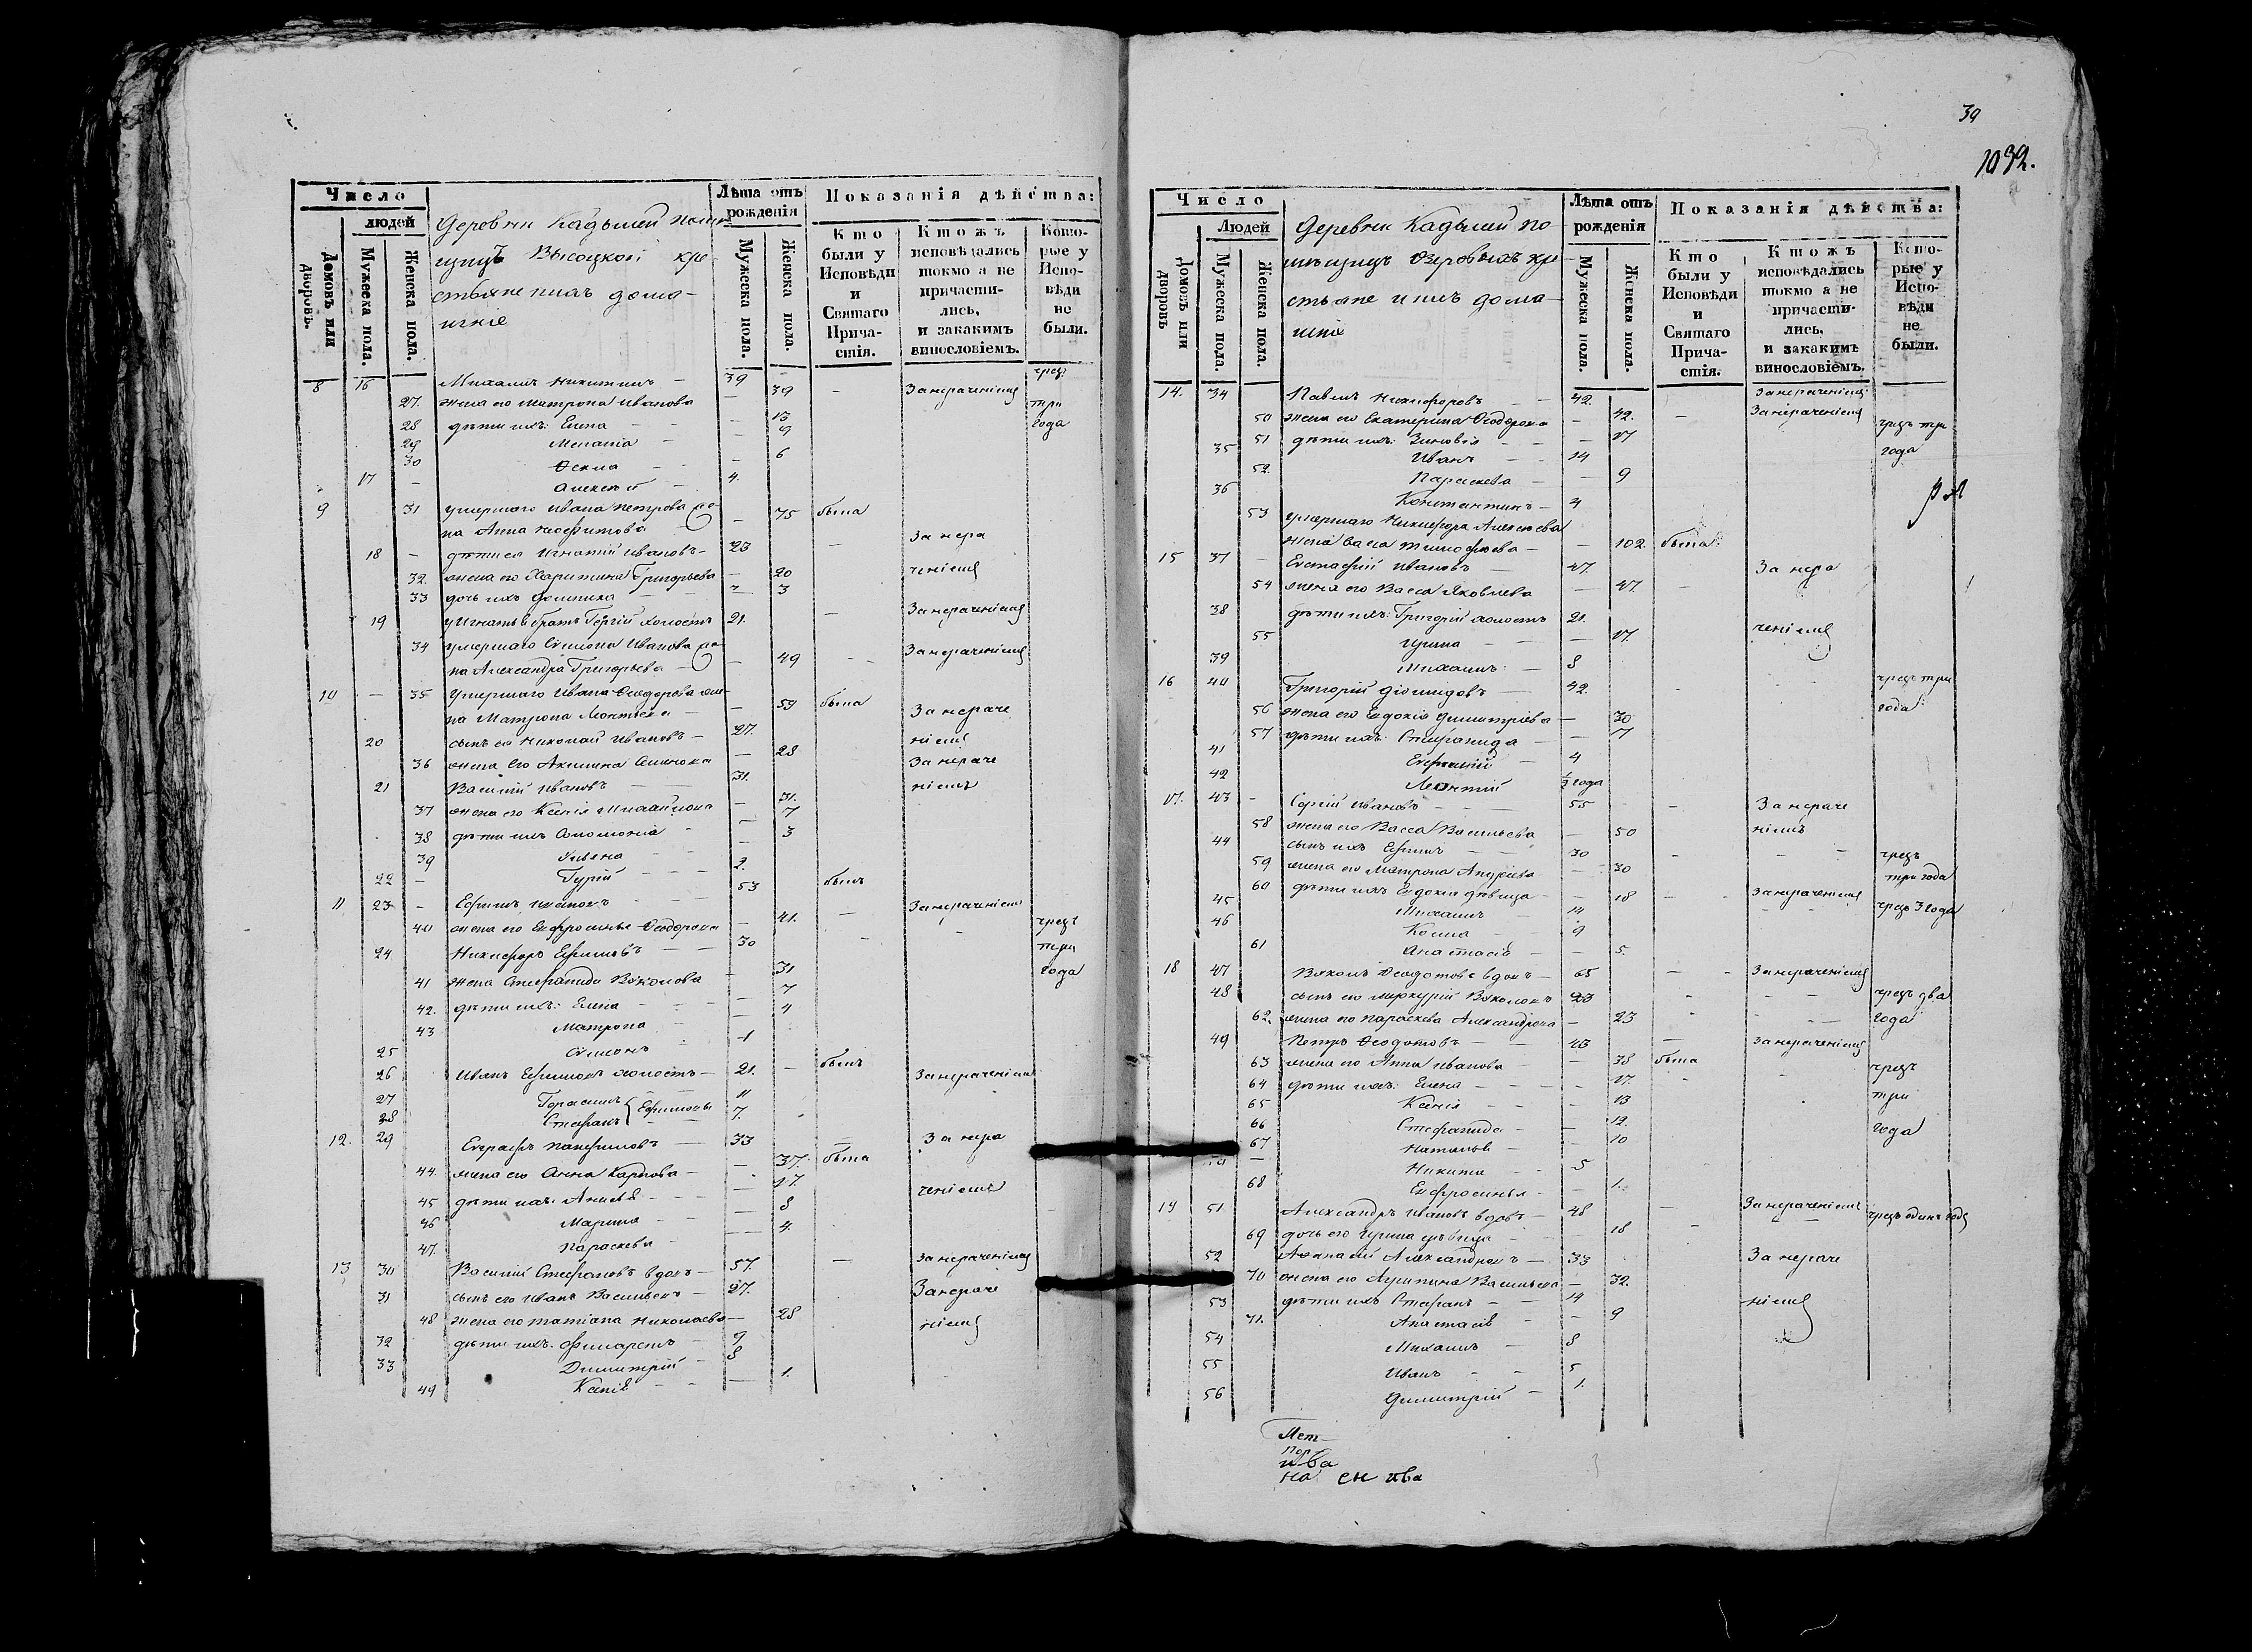 39
1032.
Число
людей
Домовъ или дворовъ.
Мужеска пола.
Женска пола.
Деревни Кадышей поме-
щицъ Высоцкой кре-
стьяне и ихъ дома-
шніе
Лѣта отъ рожденія
Мужеска пола.
Женска пола.
Показанія дѣйства:
Кто были у Исповѣди и Святаго Прича-стія.
Ктожъ исповѣдались токмо а не причасти-лись, и закакимъ винословіемъ.
Кото-рые у Испо-вѣди не были.
8 16 Михаилъ Никитинъ 39 чрезъ
27. жена его Матрона Иванова 39 За нераченіемъ три
28 дѣти ихъ: Елена 13 года
29 Меланія 9
30 Ѳекла 6
17 Алексѣй 4.
9 31 умершаго Ивана Петрова же-
на Анна Неофитова 75 была
18 дѣти ея Игнатій Ивановъ 23 За нера
32. жена его Харитина Григорьева 20 ченіемъ
33 дочь ихъ Домника 3
19 у Игнатья братъ Георгій холостъ 21. За нераченіемъ
34 умершаго Симеона Иванова же-
на Александра Григорьева 49 За нераченіемъ
10 35 умершаго Ивана Ѳеодорова же-
на Матрона Леонтьева 59 была
20 сынъ ея Николай Ивановъ 27. За нераче
36 жена его Акилина Семенова 28 ніемъ
21 Василій Ивановъ 31. За нераче
37 жена его Ксенія Михайлова 31. ніемъ
38 дѣти ихъ Соломонія 7
39 Ульяна 3
22 Гурій 2.
11 23 Ефимъ Ивановъ 53 былъ
40 жена его Евфросинья Ѳеодорова 41. За нераченіемъ
24 Никифоръ Ефимовъ 30 чрезъ
41 жена Стефанида Вуколова 31 три
42. дѣти ихъ: Елена 7 года
43 Матрона 4
25 Симеонъ 1
26 Иванъ Ефимовъ холостъ 21. былъ
27 Герасимъ Ефимовы 11 За нераченіемъ
28 Стефанъ 7.
12. 29 Евграфъ Панфиловъ 33 За нера
44. жена его Анна Карпова 37. была
45 дѣти ихъ: Анисья 17. ченіемъ
46 Марина 8
47. Параскева 4.
13 30 Василій Стефановъ вдовъ 57. За нераченіемъ
31 сынъ его Иванъ Васильевъ 27. За нераче
48 жена его Татіана Николаева 28 ніемъ
32 дѣти ихъ. Филаретъ 9
33 Димитрій 8
49 Ксенія 1.
Число
Людей
Домовъ или дворовъ
Мужеска пола.
Женска пола.
Деревни Кадышей по-
мѣщицъ Озеровыхъ кре-
стьяне и ихъ дома-
шніе
Лѣта отъ рожденія
Мужеска пола.
Женска пола.
Показанія дѣйства:
Кто были у Исповѣди и Святаго Прича-стія.
Ктожъ исповѣдались токмо а не причасти-лись, и закакимъ винословіемъ.
Кото-рые у Испо-вѣди не были.
14. 34 Павелъ Никифоровъ 42. За нераченіемъ
50 жена его Екатерина Ѳеодорова 42. За нераченіемъ
51 дѣти ихъ: Зиновія 17 чрезъ три
35 Иванъ 14 года
52. Параскева 9
36 Константинъ 4
53 умершаго Никифора Алексѣева
жена Васса Тимофеева 102. была
15 37 Евстафій Ивановъ 47. За нера
54 жена его Васса Яковлева 47.
38 дѣти ихъ: Григорій холостъ 21.
55 Ирина 17. ченіемъ
39 Михаилъ 8
16 40 Григорій Діомидовъ 42. чрезъ три
56 жена его Евдокія Димитріева 30 года
57 дѣти ихъ: Стефанида 7
41 4
42 Леонтій ½ года
17. 43 Сергій Ивановъ 55 За нераче
58 жена его Васса Васильева 50 ніемъ
44 сынъ ихъ Ефимъ 30 чрезъ
59 жена его Матрона Андреева 30 три года
60 дѣти ихъ Евдокія дѣвица 18 За нераченіемъ
45 Михаилъ 14 чрезъ 3 года
46 Косма 9
61 Анастасія 5.
18 47 Вуколъ Ѳеодотовъ вдовъ 65 За нераченіемъ
48 сынъ его Меркурій Вуколовъ 23 чрезъ два
62. жена его Параскева Александрова 23 года
49 Петръ Ѳеодотовъ 43 За нераченіемъ
63 жена его Анна Иванова 38 была
64 дѣти ихъ: Елена 17. чрезъ
65 Ксенія 13 три
66 Стефанида 12. года
67 Наталія 10
Никита 5
68 Евфросинья 1.
19 51. Александръ Ивановъ вдовъ 48 За нераченіемъ
69 дочь его Ирина дѣвица 18 чрезъ одинъ годъ
52 Аѳанасій Александровъ 33 За нераче
70 жена его Агрипина Васильева 32.
53 дѣти ихъ Стефанъ 14 ніемъ
71. Анастасія 9
54 Михаилъ 8
55 Иванъ 5
56 Димитрій 1.